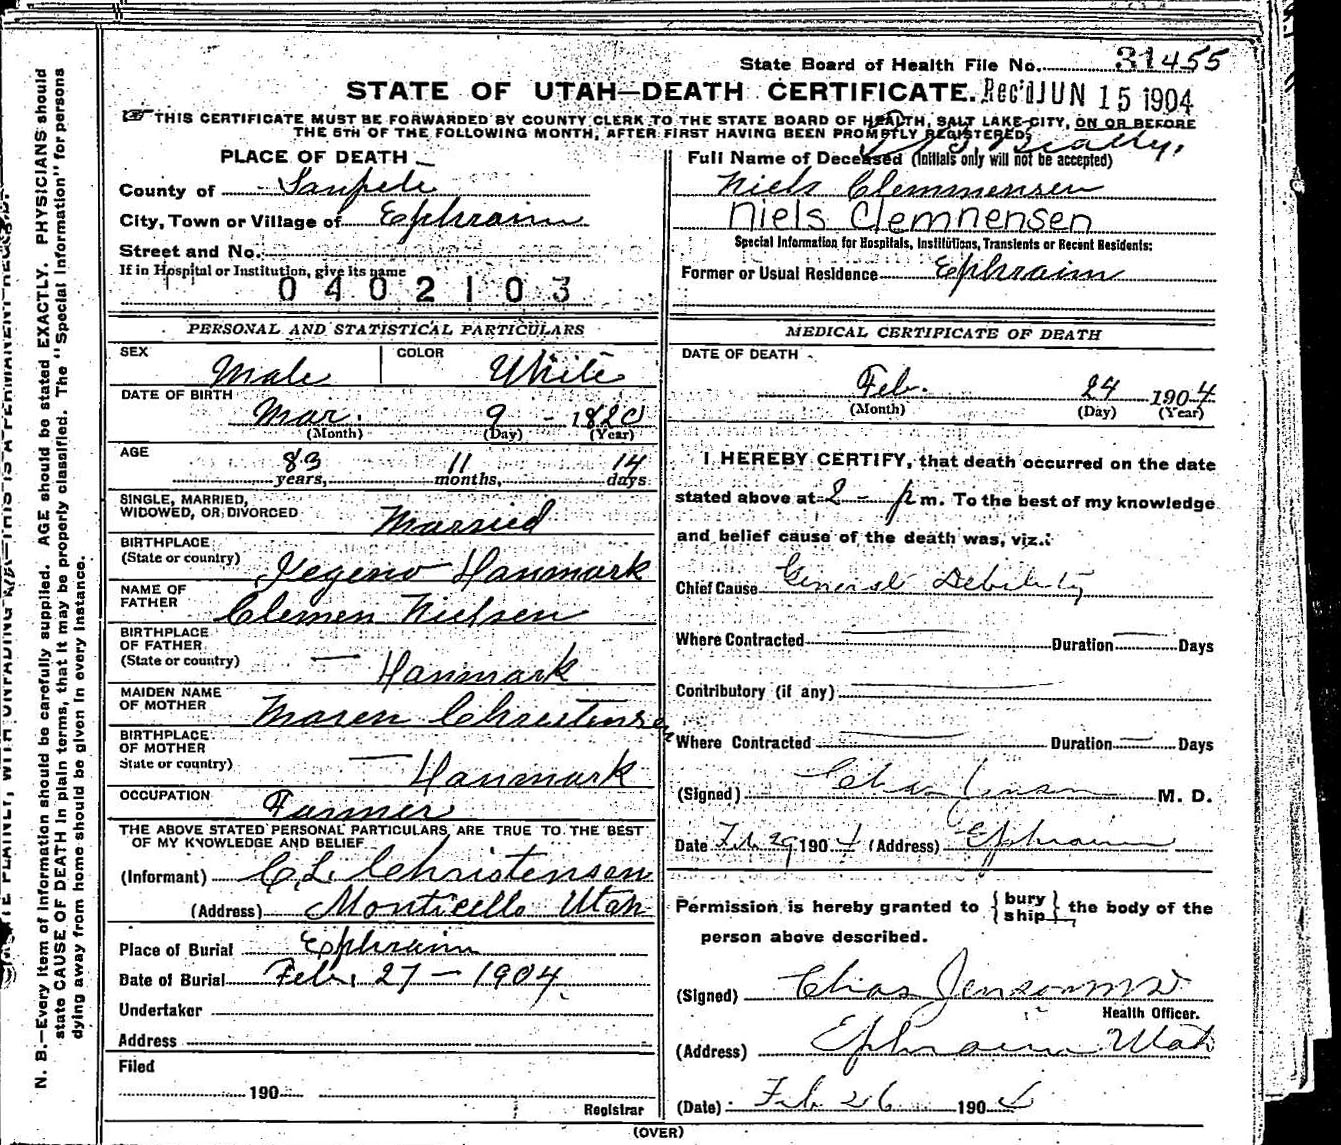 State Board of Health File No. 31455
STATE OF UTAH—DEATH CERTIFICATE. Rec'd JUN 15 1904
THIS CERTIFICATE MUST BE FORWARDED BY COUNTY CLERK TO THE STATE BOARD OF HEALTH, SALT LAKE CITY, ON OR BEFORE
THE 5TH OF THE FOLLOWING MONTH, AFTER FIRST HAVING BEEN PROMPTLY REGISTERED.
PLACE OF DEATH
County of Sanpete
City, Town or Village of Ephraim
Street and No.
If in Hospital or Institution, give its name
0402103
Full Name of Deceased (Initials only will not be accepted)
Niels Clemmensen
Niels Clemnensen
Special Information for Hospitals, Institutions, Transients or Recent Residents:
Former or Usual Residence Ephraim
PERSONAL AND STATISTICAL PARTICULARS
SEX Male COLOR White
DATE OF BIRTH
Mar. 9 - 1820
(Month) (Day) (Year)
AGE
83 11 14
years, months, days
SINGLE, MARRIED,
WIDOWED, OR DIVORCED Married
BIRTHPLACE
(State or country) Danmark
NAME OF
FATHER Clemen Nielsen
BIRTHPLACE
OF FATHER
(State or country) — Danmark
MAIDEN NAME
OF MOTHER Maren Christensen
BIRTHPLACE
OF MOTHER
State or country) — Danmark
OCCUPATION Farmer
THE ABOVE STATED PERSONAL PARTICULARS ARE TRUE TO THE BEST
OF MY KNOWLEDGE AND BELIEF
(Informant) C. L. Christensen
(Address) Monticello Utah
Place of Burial Ephraim
Date of Burial Feb. 27 — 1904.
Undertaker
Address
Filed
190
Registrar
MEDICAL CERTIFICATE OF DEATH
DATE OF DEATH
Feb. 24 1904
(Month) (Day) (Year)
I HEREBY CERTIFY, that death occurred on the date
stated above at 2 - p m. To the best of my knowledge
and belief cause of the death was, viz.:
Chief Cause General Debility
Where Contracted — Duration — Days
Contributory (if any) —
Where Contracted — Duration — Days
(Signed) Chas Jenson M. D.
Date Feb 29 1904 (Address) Ephraim
Permission is hereby granted to { bury
ship } the body of the
person above described.
(Signed) Chas Jenson MD
Health Officer.
(Address) Ephraim Utah
(Date) Feb 26 1904
(OVER)
N. B.—Every item of information should be carefully supplied. AGE should be stated EXACTLY. PHYSICIANS should
state CAUSE OF DEATH in plain terms, that it may be properly classified. The "Special Information" for persons
dying away from home should be given in every instance.